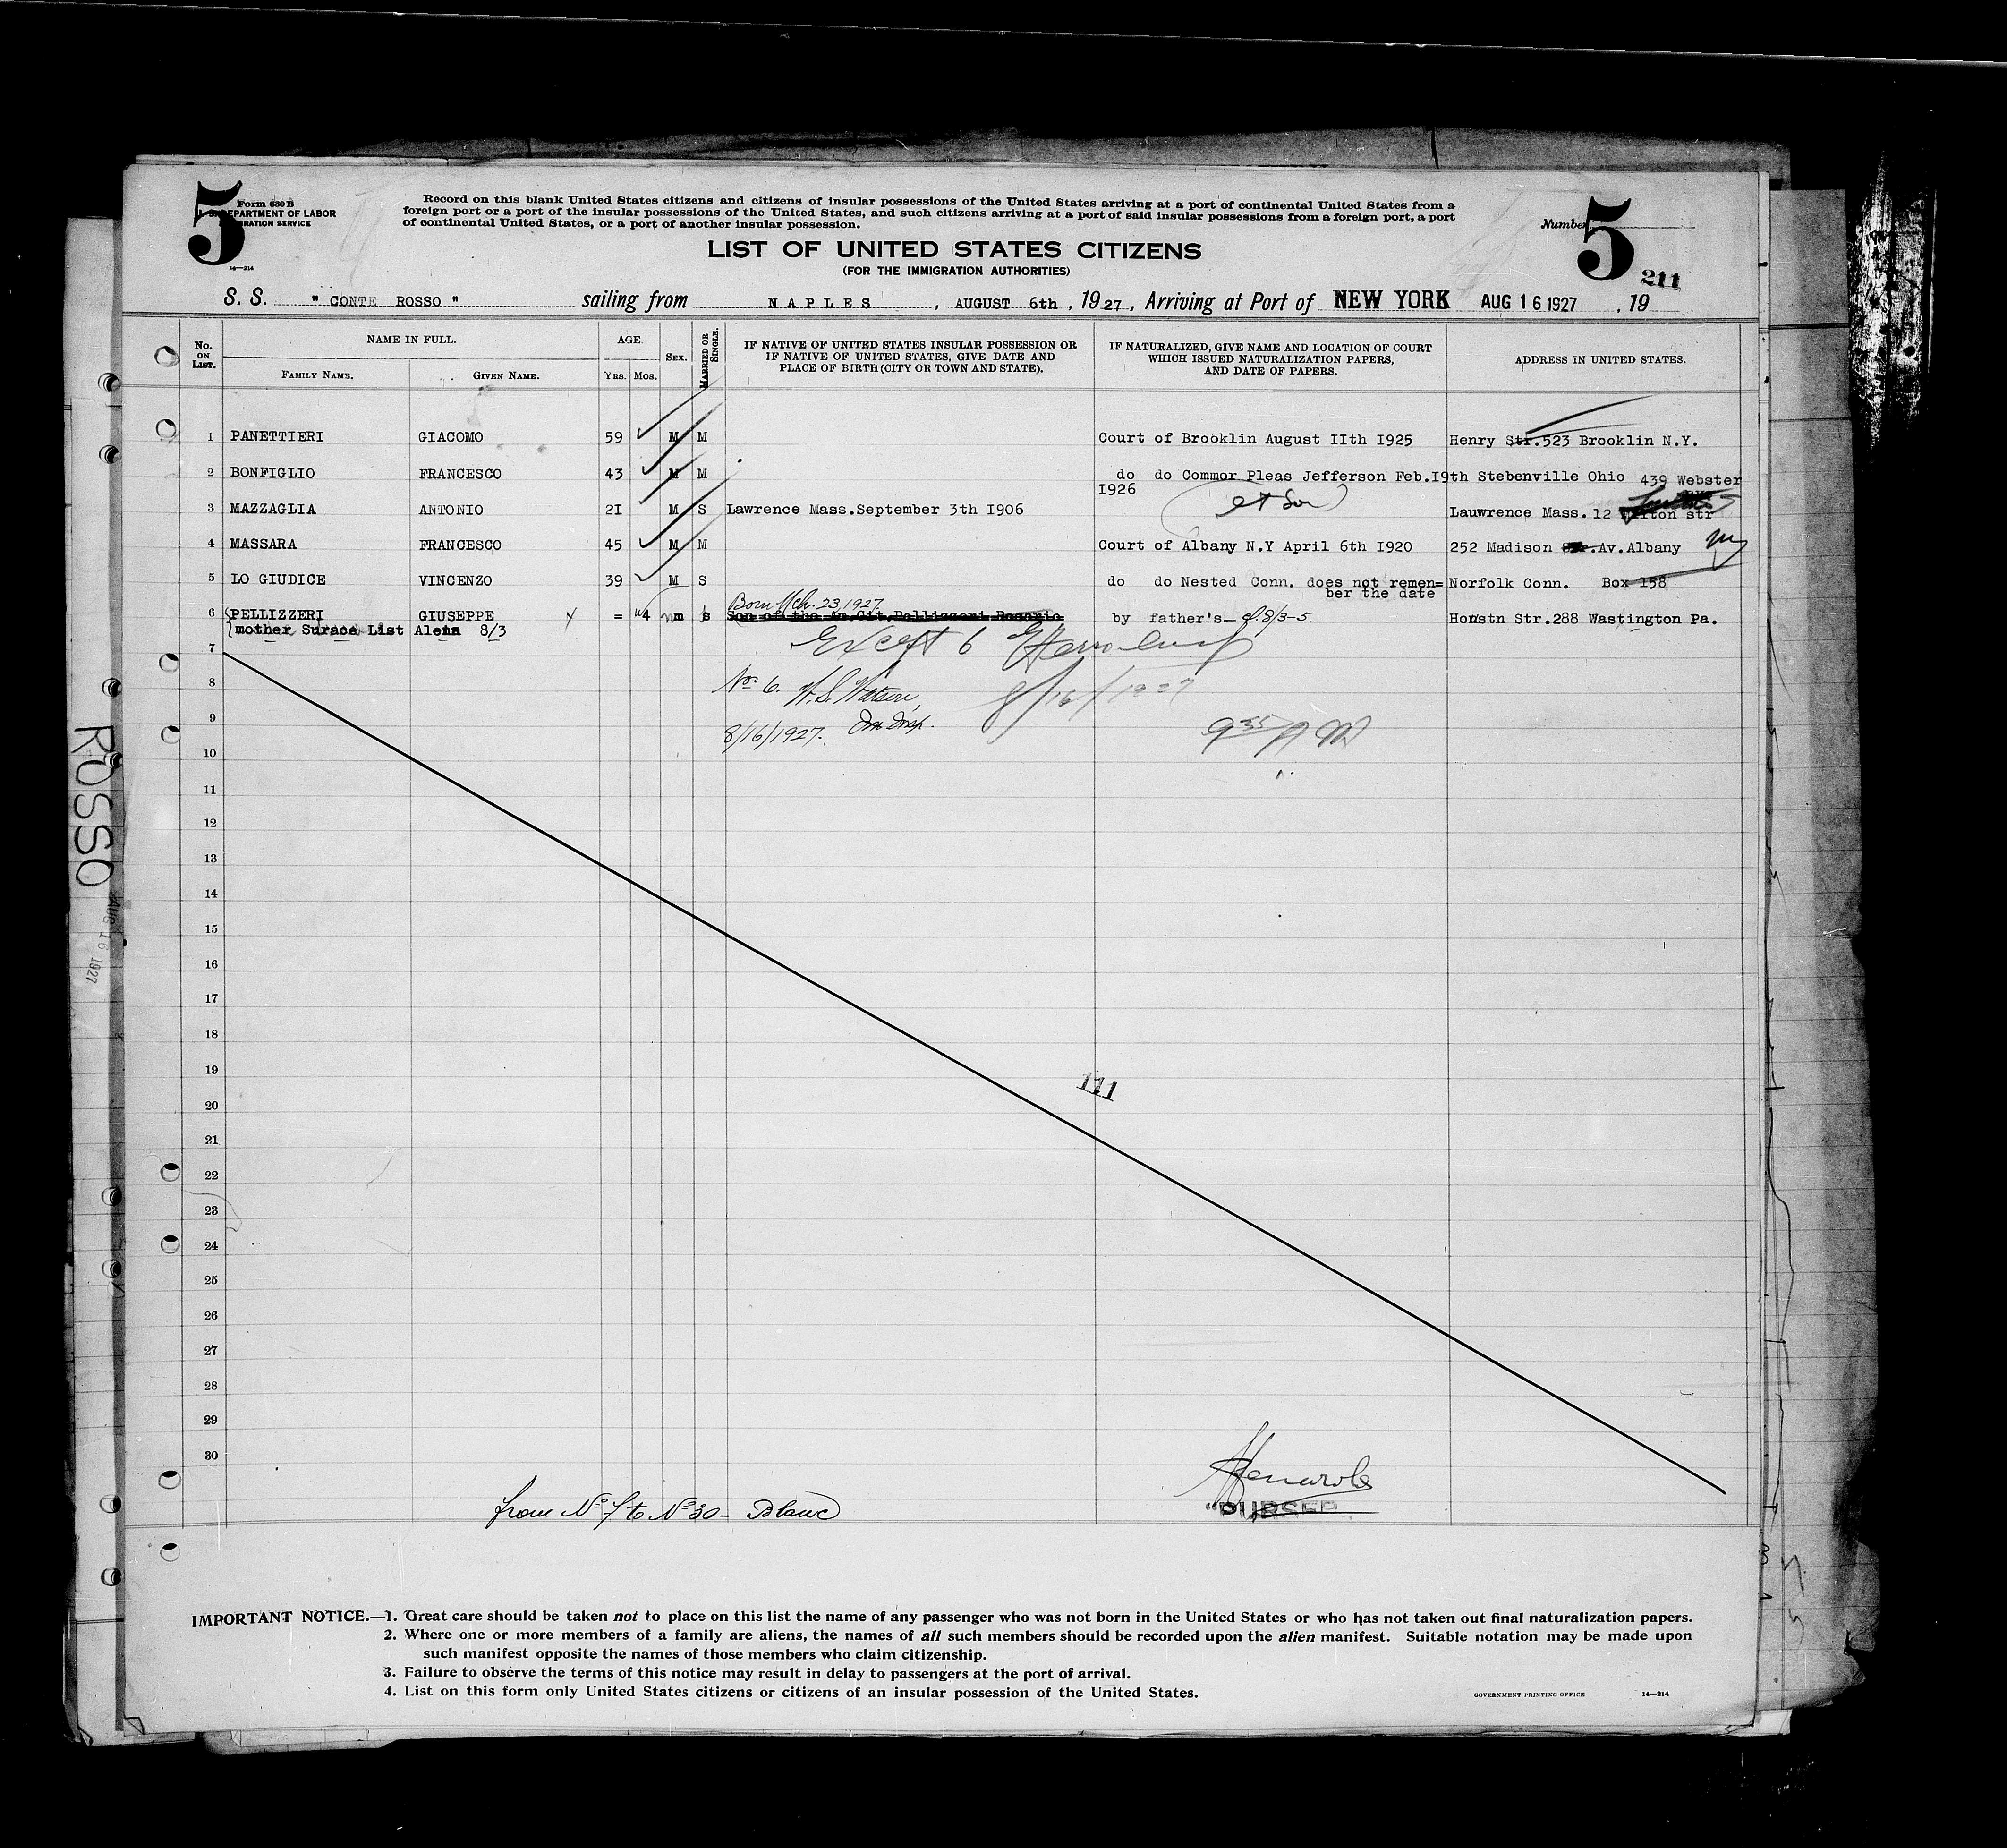 5
Form 630 B
U. S. DEPARTMENT OF LABOR
IMMIGRATION SERVICE
14—214
Record on this blank United States citizens and citizens of insular possessions of the United States arriving at a port of continental United States from a
foreign port or a port of the insular possessions of the United States, and such citizens arriving at a port of said insular possessions from a foreign port, a port
of continental United States, or a port of another insular possession.
Number 5
211
LIST OF UNITED STATES CITIZENS
(FOR THE IMMIGRATION AUTHORITIES)
S. S. " CONTE ROSSO " sailing from NAPLES , AUGUST 6th , 1927, Arriving at Port of NEW YORK AUG 16 1927 , 19
No. ON LIST. NAME IN FULL. AGE. SEX. MARRIED OR SINGLE. IF NATIVE OF UNITED STATES INSULAR POSSESSION OR IF NATIVE OF UNITED STATES, GIVE DATE AND PLACE OF BIRTH (CITY OR TOWN AND STATE). IF NATURALIZED, GIVE NAME AND LOCATION OF COURT WHICH ISSUED NATURALIZATION PAPERS, AND DATE OF PAPERS. ADDRESS IN UNITED STATES.
FAMILY NAME. GIVEN NAME. YRS. MOS.
1 PANETTIERI GIACOMO 59 M M Court of Brooklin August IIth I925 Henry Str.523 Brooklin N.Y.
2 BONFIGLIO FRANCESCO 43 M M do do Commor Pleas Jefferson Feb.I9th Stebenville Ohio 439 Webster
I926
3 MAZZAGLIA ANTONIO 2I M S Lawrence Mass.September 3th I906 Lauwrence Mass. 12 str
4 MASSARA FRANCESCO 45 M M Court of Albany N.Y April 6th I920 252 Madison Str.Av.Albany
5 LO GIUDICE VINCENZO 39 M S do do Nested Conn. does not remen= Norfolk Conn. Box 158
ber the date
Born Mch. 23, 1927.
6 PELLIZZERI GIUSEPPE = 4 m s Son of the Am.Cit.Pellizzeri Rosario by father's— 8/3-5. Honstn Str.288 Wastington Pa.
mother Surace List Alein 8/3
Except 6
No. 6. W. S. Watson, 8/16/1927
8/16/1927. Im Insp. 9 35 AM
7
8
9
10
11
12
13
14
15
16
17
18
19
111
20
21
22
23
24
25
26
27
28
29
30
from No 7 to No 30 — Blanc
"PURSER
IMPORTANT NOTICE.—1. Great care should be taken not to place on this list the name of any passenger who was not born in the United States or who has not taken out final naturalization papers.
2. Where one or more members of a family are aliens, the names of all such members should be recorded upon the alien manifest. Suitable notation may be made upon
such manifest opposite the names of those members who claim citizenship.
3. Failure to observe the terms of this notice may result in delay to passengers at the port of arrival.
4. List on this form only United States citizens or citizens of an insular possession of the United States.
GOVERNMENT PRINTING OFFICE 14—214
ROSSO
AUG 16 1927